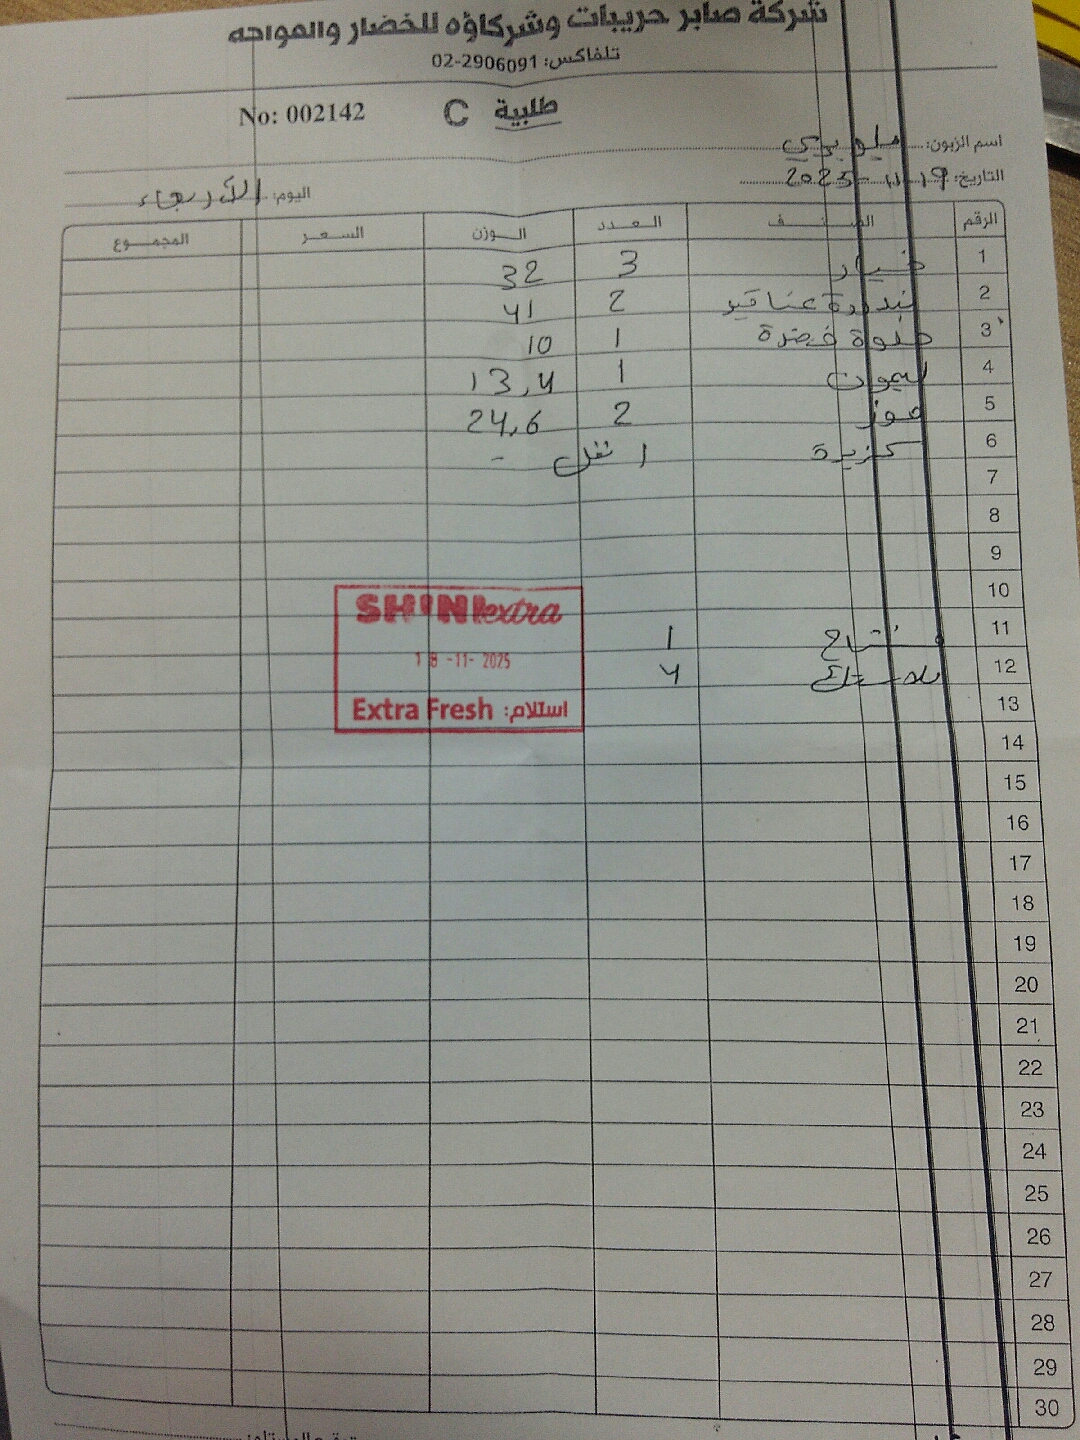 شركة صابر حريبات وشركاؤه للخضار والفواكه
تلفاكس: 02-2906091
No: 002142 C طلبية
اسم الزبون:
التاريخ: 19-11-2025
اليوم: الأربعاء
الرقم الصنف العدد الوزن السعر المجموع
1 خيار 3 32
2 بندورة عناقيد 2 41
3 حلوة خضرة 1 10
4 ليمون 1 13,4
5 موز 2 24,6
6 كزبرة 1 نقل -
7
8
9
10
11 مشتاح 1
12 بلاستيك 4
13
14
15
16
17
18
19
20
21
22
23
24
25
26
27
28
29
30
SHINI extra
18-11-2025
Extra Fresh استلام: